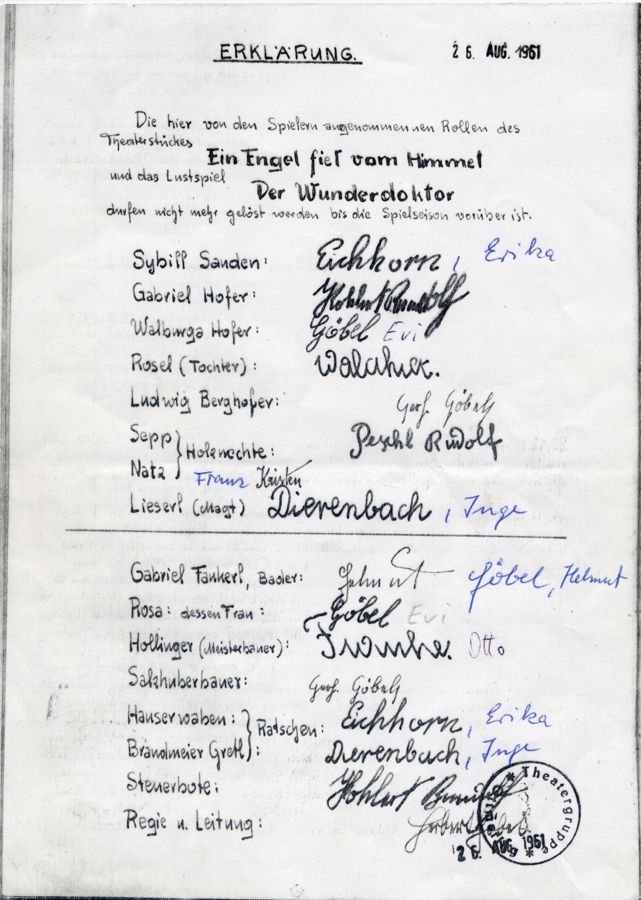 ERKLÄRUNG. 26. AUG. 1961
Die hier von den Spielern angenommennen Rollen des
Theaterstückes Ein Engel fiel vom Himmel
und das Lustspiel Der Wunderdoktor
dürfen nicht mehr gelöst werden bis die Spielseison vorüber ist.
Sybill Sanden: Eichhorn, Erika
Gabriel Hofer: Hohlert
Walburga Hofer: Göbel Evi
Rosel (Tochter):
Ludwig Berghofer: Gerh. Göbel
Sepp } Holzknechte: Peschl Rudolf
Natz Franz Kristen
Lieserl (Magd) Dierenbach, Inge
Gabriel Fankerl, Bader: Helmut Göbel, Helmut
Rosa: dessen Frau: Göbel Evi
Hollinger (Meisterbauer): Otto
Salzhuberbauer: Gerh. Göbel
Hauserwaben: } Ratschen: Eichhorn, Erika
Brandmeier Gretl: Dierenbach, Inge
Steuerbote: Hohlert
Regie u. Leitung:
Theatergruppe
26. AUG. 1961